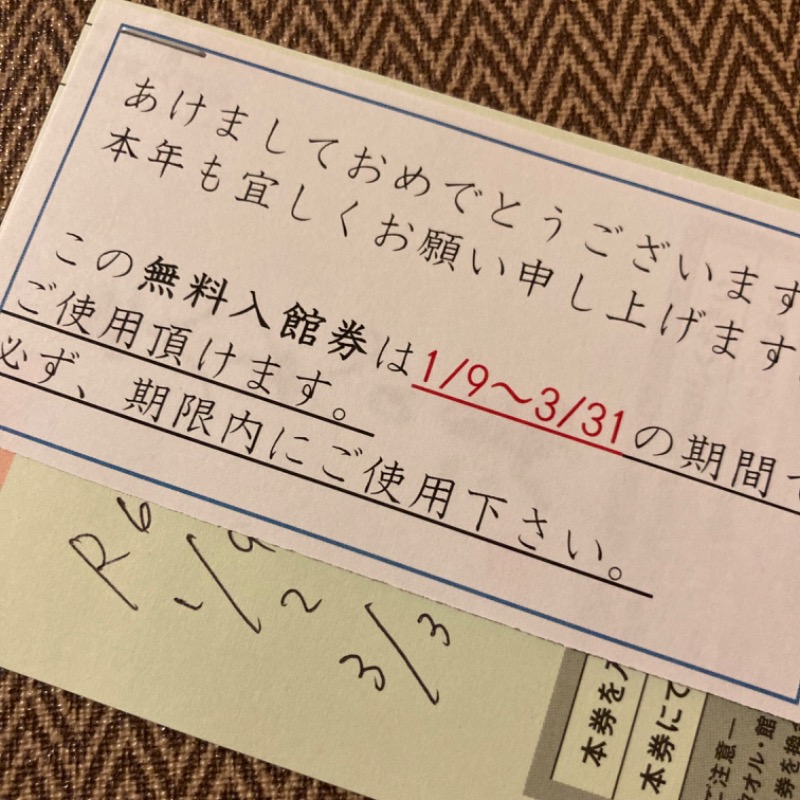 あけましておめでとうございます
本年も宜しくお願い申し上げます。
この無料入館券は1/9～3/31の期間で
ご使用頂けます。
必ず、期限内にご使用下さい。
R6
1/9
2
3/3
本券を入
本券にて
ご注意
タオル・館
券を換